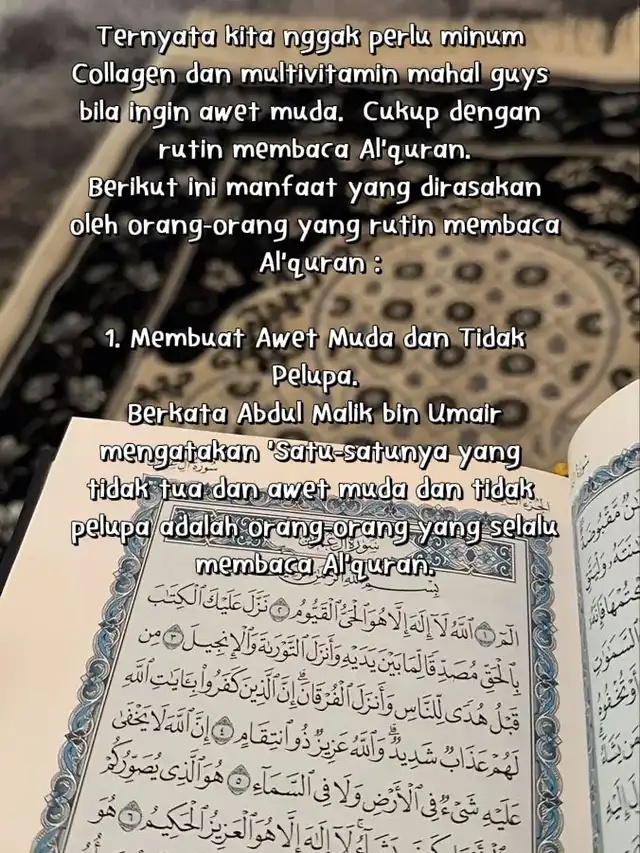 Ternyata kita nggak perlu minum
Collagen dan multivitamin mahal guys
bila ingin awet muda. Cukup dengan
rutin membaca Al'quran.
Berikut ini manfaat yang dirasakan
oleh orang-orang yang rutin membaca
Al'quran :
1. Membuat Awet Muda dan Tidak
Pelupa.
Berkata Abdul Malik bin Umair
mengatakan 'Satu-satunya yang
tidak tua dan awet muda dan tidak
pelupa adalah orang-orang yang selalu
membaca Al'quran.
الٓمٓ ١ ٱللَّهُ لَآ إِلَٰهَ إِلَّا هُوَ ٱلْحَىُّ ٱلْقَيُّومُ ٢ نَزَّلَ عَلَيْكَ ٱلْكِتَٰبَ
بِٱلْحَقِّ مُصَدِّقًا لِّمَا بَيْنَ يَدَيْهِ وَأَنزَلَ ٱلتَّوْرَىٰةَ وَٱلْإِنجِيلَ ٣ مِن
قَبْلُ هُدًى لِّلنَّاسِ وَأَنزَلَ ٱلْفُرْقَانَ إِنَّ ٱلَّذِينَ كَفَرُوا۟ بِـَٔايَٰتِ ٱللَّهِ
لَهُمْ عَذَابٌ شَدِيدٌ وَٱللَّهُ عَزِيزٌ ذُو ٱنتِقَامٍ ٤ إِنَّ ٱللَّهَ لَا يَخْفَىٰ
عَلَيْهِ شَىْءٌ فِى ٱلْأَرْضِ وَلَا فِى ٱلسَّمَآءِ ٥ هُوَ ٱلَّذِى يُصَوِّرُكُمْ
لَآ إِلَٰهَ إِلَّا هُوَ ٱلْعَزِيزُ ٱلْحَكِيمُ ٦ هُوَ